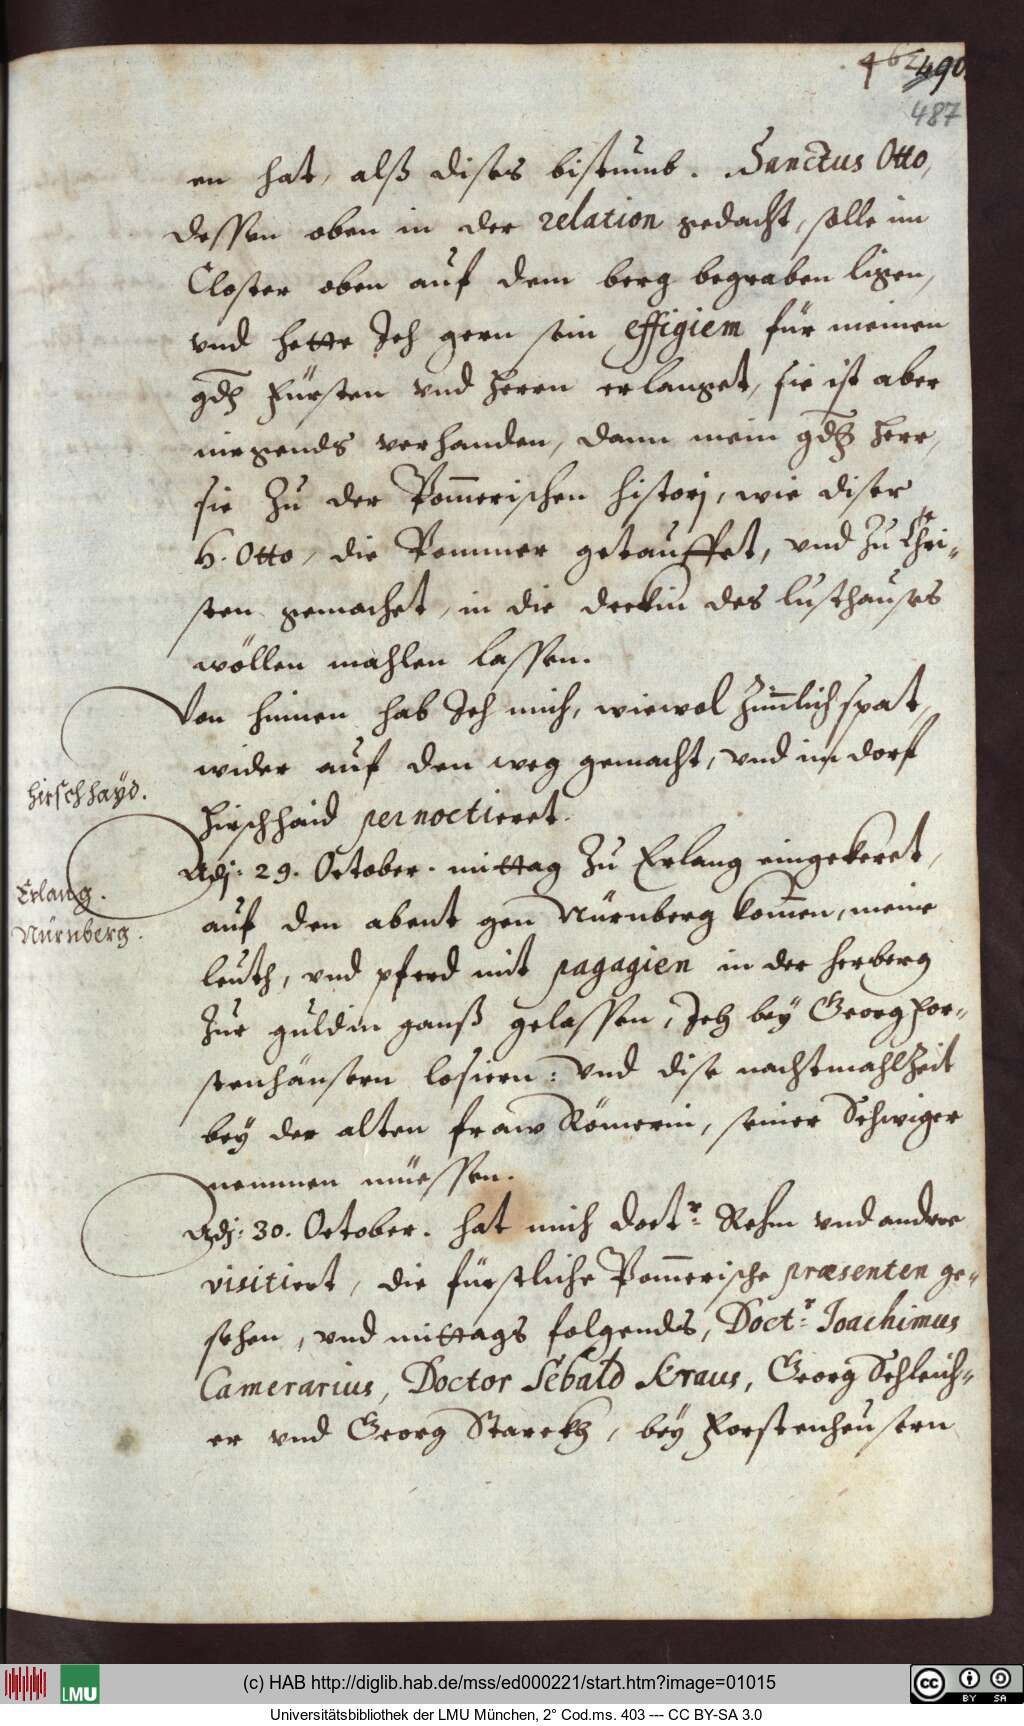 490
487
en hat, alß dises bistumb. Sanctus Otto,
dessen oben in der relation gedacht, solle im
Closter oben auf dem berg begraben ligen,
vnd hette Ich gern sein effigiem für meinen
gdh Fürsten vnd herrn erlanget, sie ist aber
niergends verhanden, dann mein gdh herr,
sie Zu der Pom̄erischen historj, wie diser
H. Otto, die Pommer getauffet, vnd Zu Chri-
sten gemachet, in die deckin des lusthauses
wöllen mahlen lassen.
Von hinnen hab Ich mich, wiewol Zim̄lich spat,
wider auf den weg gemacht, vnd im dorf
hirschhayd.
Hirschhaid pernoctieret.
Adj: 29. October. mittag Zu Erlang eingekeret,
Erlang.
auf den abent gen Nürnberg kom̄en, meine
Nürnberg.
leuth, vnd pferd mit pagagien in der herberg
Zur guldin ganß gelassen, Ich bey Georg For-
stenhäusern losiern: vnd dise nachtmahlZeit
bey der alten fraw Römerin, seiner Schwiger
nemmen müessen.
Adj: 30. October. hat mich doctr: Rehm vnd andere
visitiert, die fürstliche Pom̄erische præsenten ge-
sehen, vnd mittags folgends, Doctr: Joachimus
Camerarius, Doctor Sebald Kraus, Georg Schleich-
er vnd Georg Starckh, bey Forstenheusern
(c) HAB http://diglib.hab.de/mss/ed000221/start.htm?image=01015
LMU
CC BY SA
Universitätsbibliothek der LMU München, 2° Cod.ms. 403 --- CC BY-SA 3.0